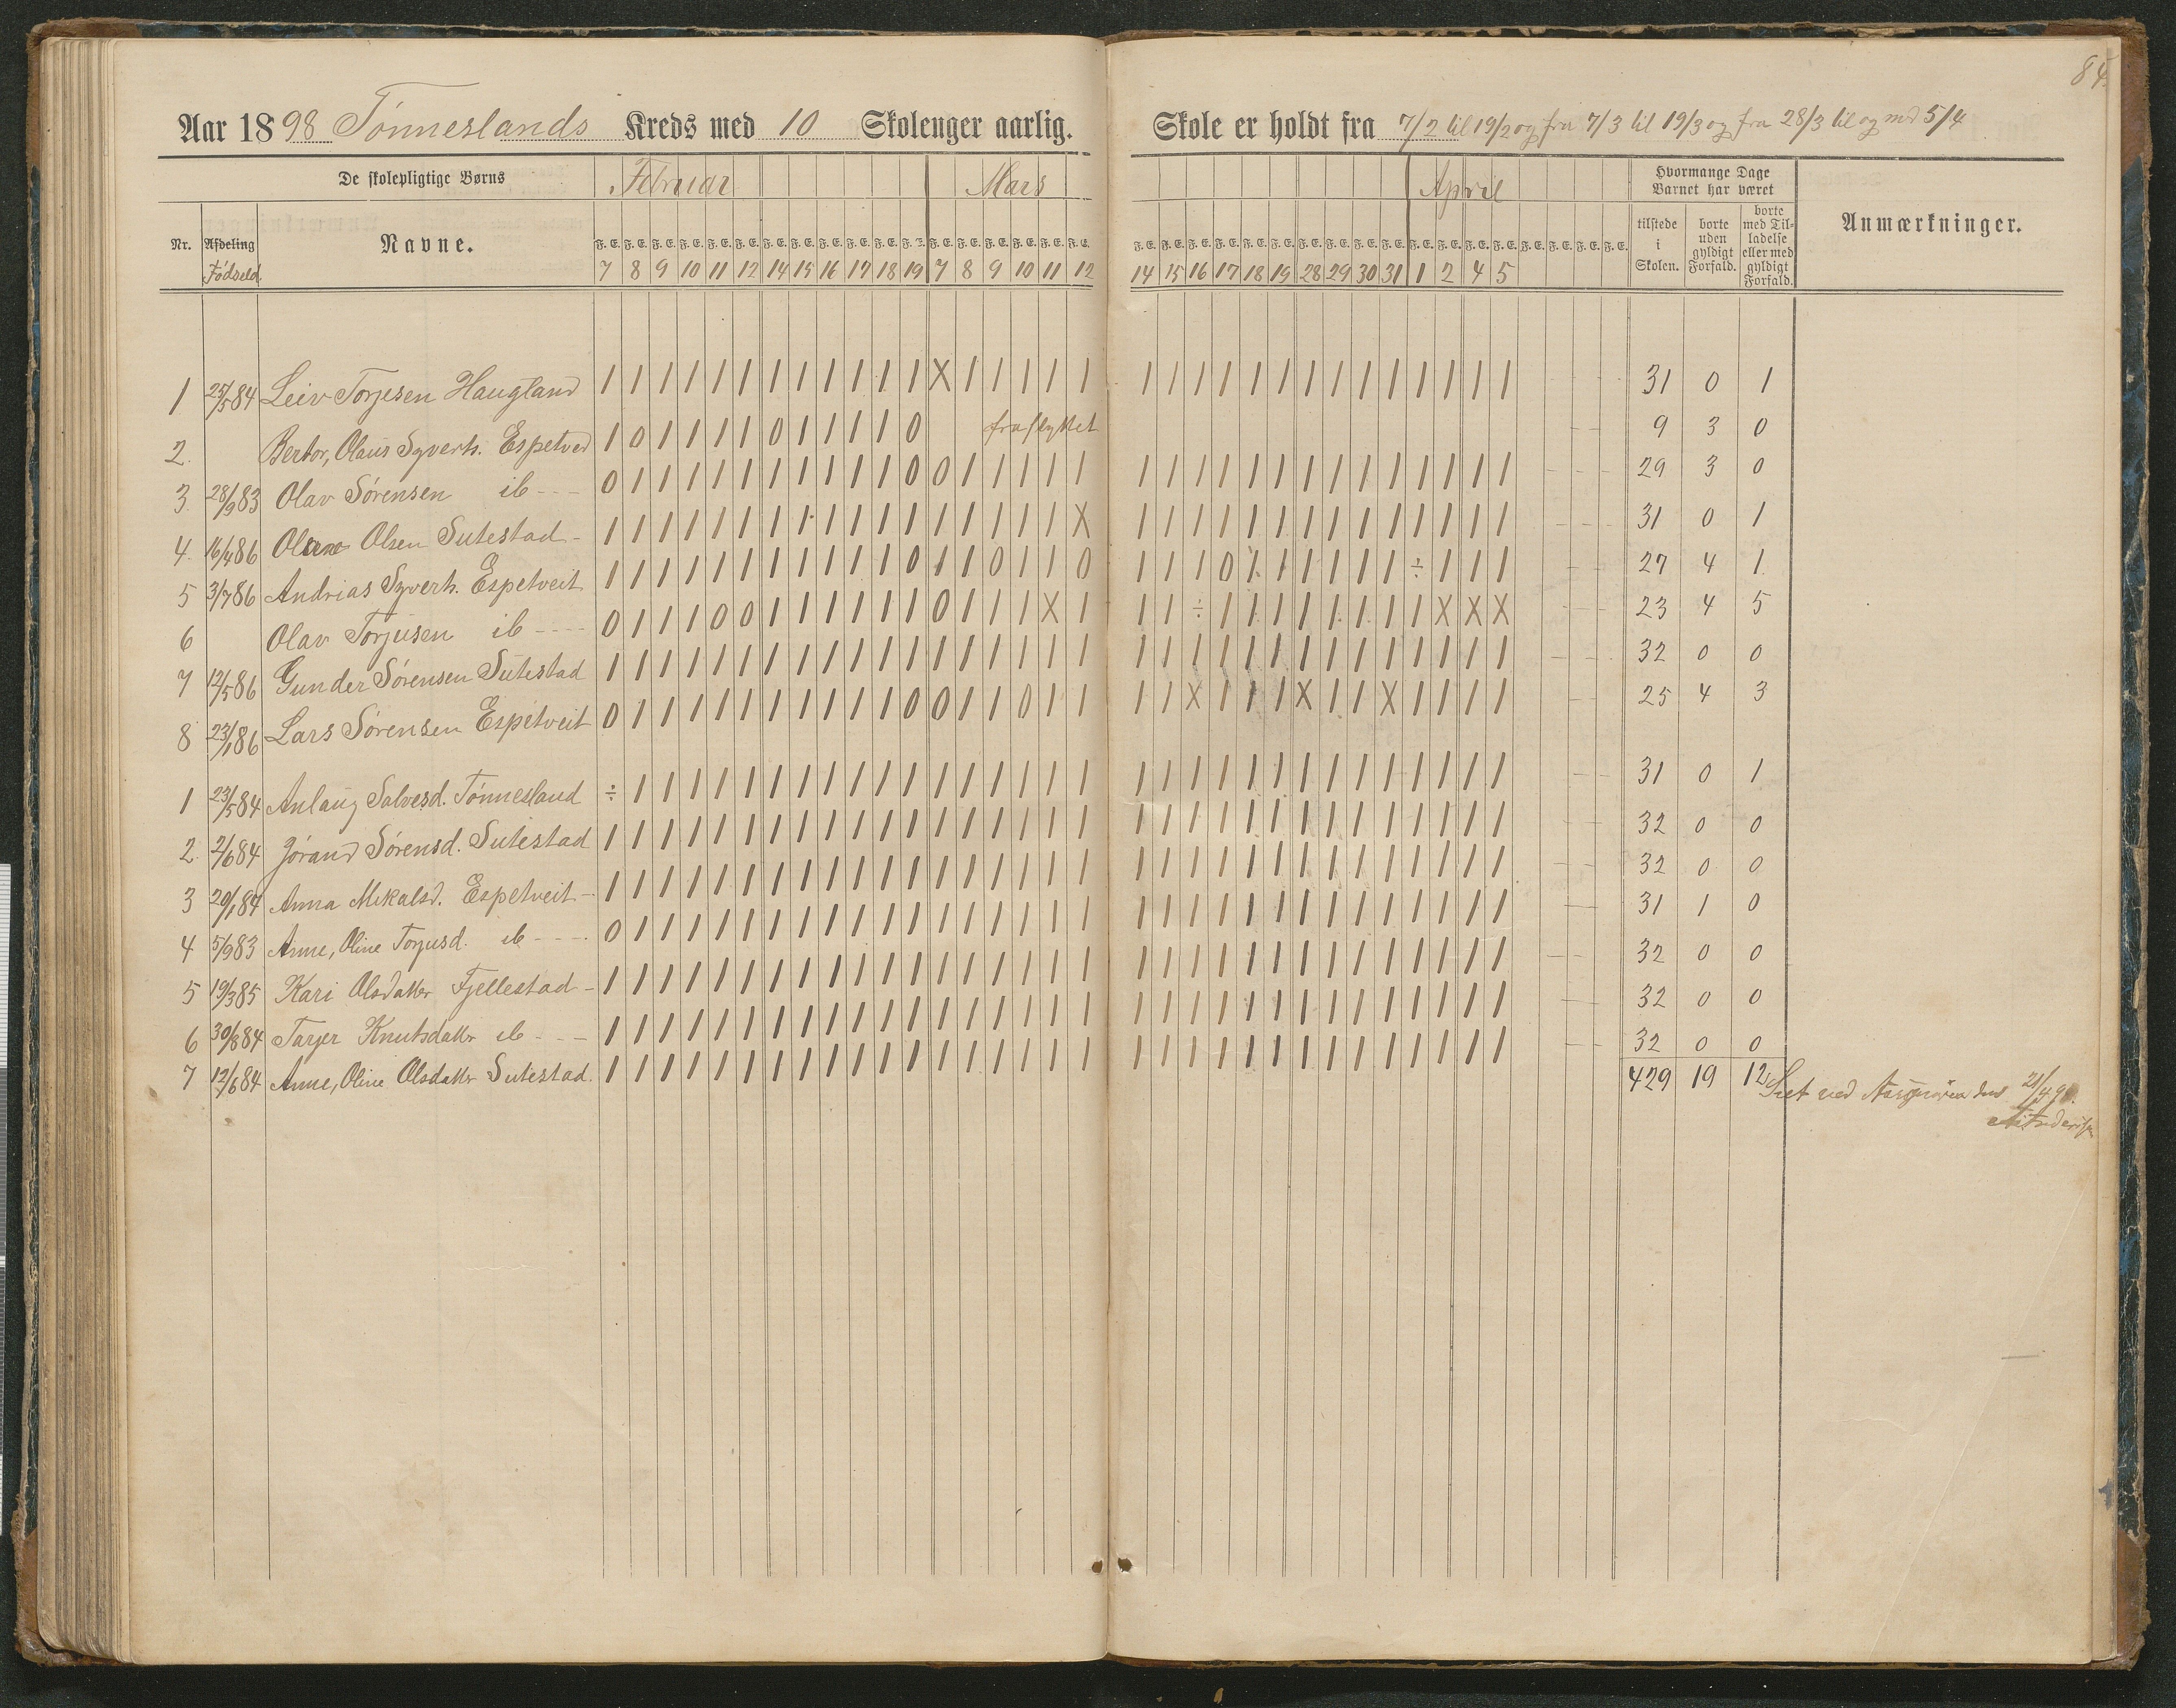 84.
Aar 1898 Tønneslands Kreds med 10 Skolenger aarlig. Skole er holdt fra 7/2 til 19/2 og fra 7/3 til 19/3 og fra 28/3 til og med 5/4
De skolepligtige Børns Februar Mars April Hvormange Dage Barnet har været
Nr. Afdeling Fødseld. Navne. F. E. F. E. F. E. F. E. F. E. F. E. F. E. F. E. F. E. F. E. F. E. F. E. F. E. F. E. F. E. F. E. F. E. F. E. F. E. F. E. F. E. F. E. F. E. F. E. F. E. F. E. F. E. F. E. F. E. F. E. F. E. F. E. F. E. F. E. F. E. F. E. tilstede i Skolen. borte uden gyldigt Forfald. borte med Tilladelse eller med gyldigt Forfald. Anmærkninger.
7 8 9 10 11 12 14 15 16 17 18 19 7 8 9 10 11 12 14 15 16 17 18 19 28 29 30 31 1 2 4 5
1 25/5 84 Leiv Torjesen Haugland 1 1 1 1 1 1 1 1 1 1 1 1 X 1 1 1 1 1 1 1 1 1 1 1 1 1 1 1 1 1 1 1 31 0 1
2. Bertor, Olaus Syverts. Espetved 1 0 1 1 1 1 0 1 1 1 1 0 fraflyttet 9 3 0
3. 28/9 83 Olav Sørensen ib --- 0 1 1 1 1 1 1 1 1 1 1 0 0 1 1 1 1 1 1 1 1 1 1 1 1 1 1 1 1 1 1 1 29 3 0
4. 16/4 86 Olsen Sutestad - 1 1 1 1 1 1 1 1 1 1 1 1 1 1 1 1 1 X 1 1 1 1 1 1 1 1 1 1 1 1 1 1 31 0 1
5 3/7 86 Andrias Syverts. Espetveit 1 1 1 1 1 1 1 1 1 1 1 0 1 1 0 1 1 0 1 1 1 0 1 1 1 1 1 1 ÷ 1 1 1 27 4 1
6 Olav Torjusen ib ---- 0 1 1 1 0 0 1 1 1 1 1 1 0 1 1 1 X 1 1 1 ÷ 1 1 1 1 1 1 1 1 X X X 23 4 5
7 12/5 86 Gunder Sørensen Sutestad 1 1 1 1 1 1 1 1 1 1 1 1 1 1 1 1 1 1 1 1 1 1 1 1 1 1 1 1 1 1 1 1 32 0 0
8 23/1 86 Lars Sørensen Espetveit 0 1 1 1 1 1 1 1 1 1 1 0 0 1 1 0 1 1 1 1 X 1 1 1 X 1 1 X 1 1 1 1 25 4 3
1 23/5 84 Anlaug Salvesd. Tønnesland ÷ 1 1 1 1 1 1 1 1 1 1 1 1 1 1 1 1 1 1 1 1 1 1 1 1 1 1 1 1 1 1 1 31 0 1
2. 2/6 84 Jórand Sørensd. Sutestad 1 1 1 1 1 1 1 1 1 1 1 1 1 1 1 1 1 1 1 1 1 1 1 1 1 1 1 1 1 1 1 1 32 0 0
3 20/1 84 Anna Mikalsd. Espetveit - 1 1 1 1 1 1 1 1 1 1 1 1 1 1 1 1 1 1 1 1 1 1 1 1 1 1 1 1 1 1 1 1 32 0 0
4 5/9 83 Anne, Oline Torjusd. ib ---- 0 1 1 1 1 1 1 1 1 1 1 1 1 1 1 1 1 1 1 1 1 1 1 1 1 1 1 1 1 1 1 1 31 1 0
5 19/3 85 Kari Olsdatter Fjellestad - 1 1 1 1 1 1 1 1 1 1 1 1 1 1 1 1 1 1 1 1 1 1 1 1 1 1 1 1 1 1 1 1 32 0 0
6 30/8 84 Tarjer Knutsdattr ib --- 1 1 1 1 1 1 1 1 1 1 1 1 1 1 1 1 1 1 1 1 1 1 1 1 1 1 1 1 1 1 1 1 32 0 0
7 12/6 84 Anne, Oline Olsdattr Sutestad. 1 1 1 1 1 1 1 1 1 1 1 1 1 1 1 1 1 1 1 1 1 1 1 1 1 1 1 1 1 1 1 1 32 0 0
429 19 12
Seet ved den 21/4 98.